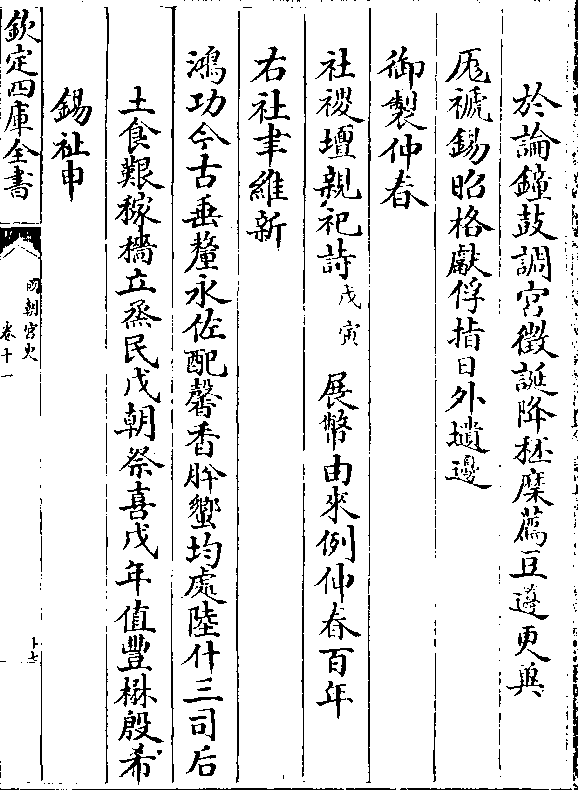 於論鐘鼓調宫徴誕降秠穈薦豆籩更與
厖禠錫昭格獻俘指日外壝邊
御製仲春
社稷壇親祀詩戊寅 展幣由來例仲春百年
右社聿維新
鴻功今古垂釐永佐配馨香肸蠁均處陸什三司后
土食艱稼穡立烝民戊朝祭喜戊年值豐楙殷希
錫祉申
欽定四庫全書
國朝宫史
卷十一